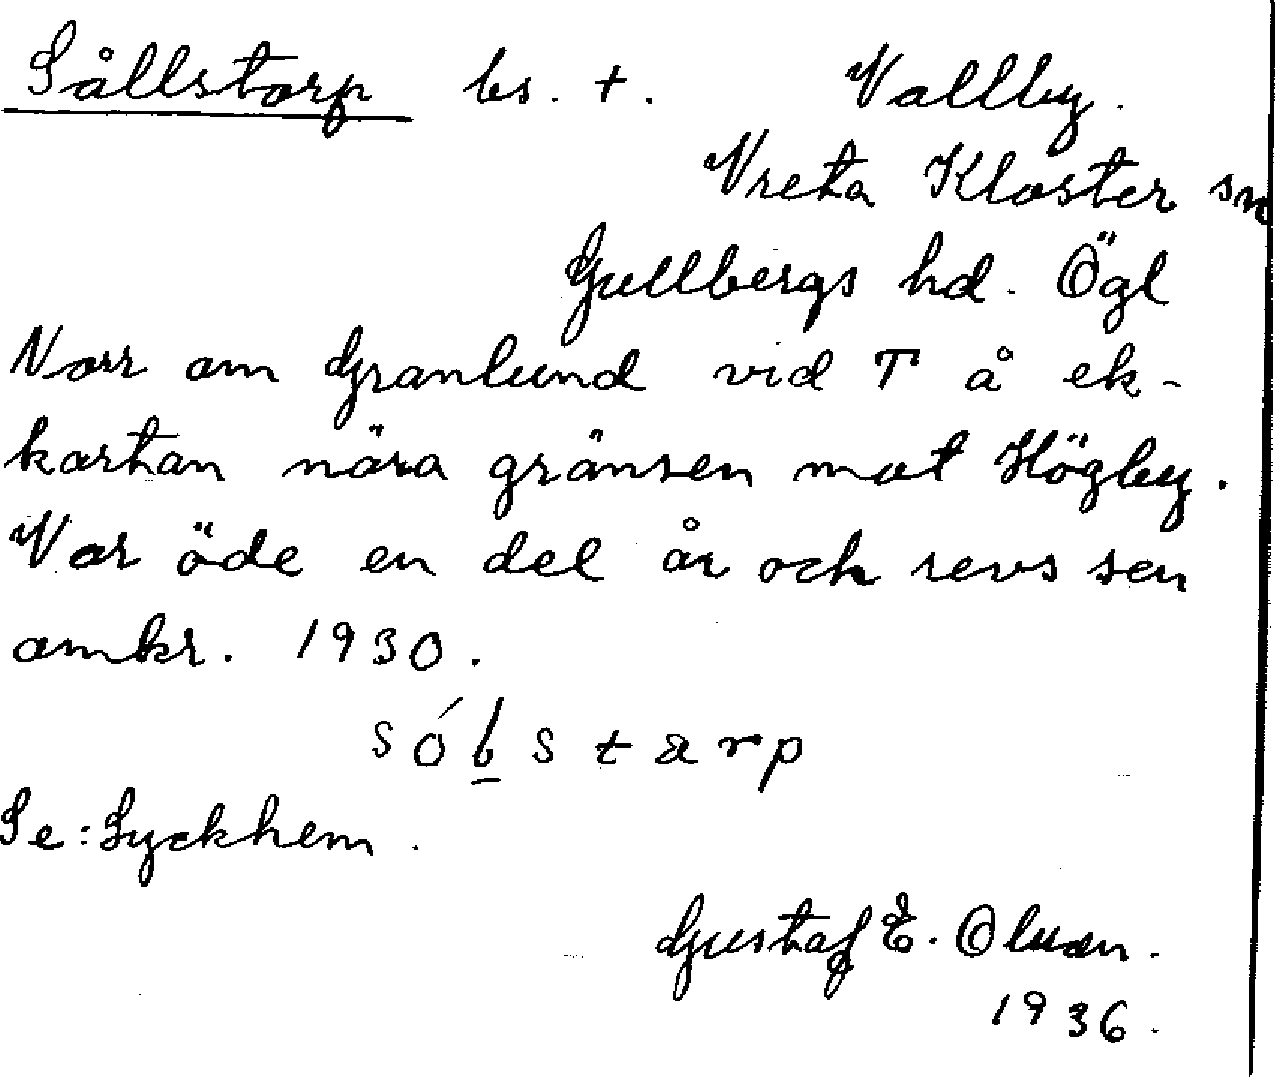 Sållstorp bs. +. Vallby.
Vreta Kloster sn
Gullbergs hd. Ögl
Norr om Granlund vid T å ek-
kartan nära gränsen mot Högby.
Var öde en del år och revs sen
omkr. 1930.
sólstarp
Se: Lyckhem.
Gustaf E. Olsson.
1936.